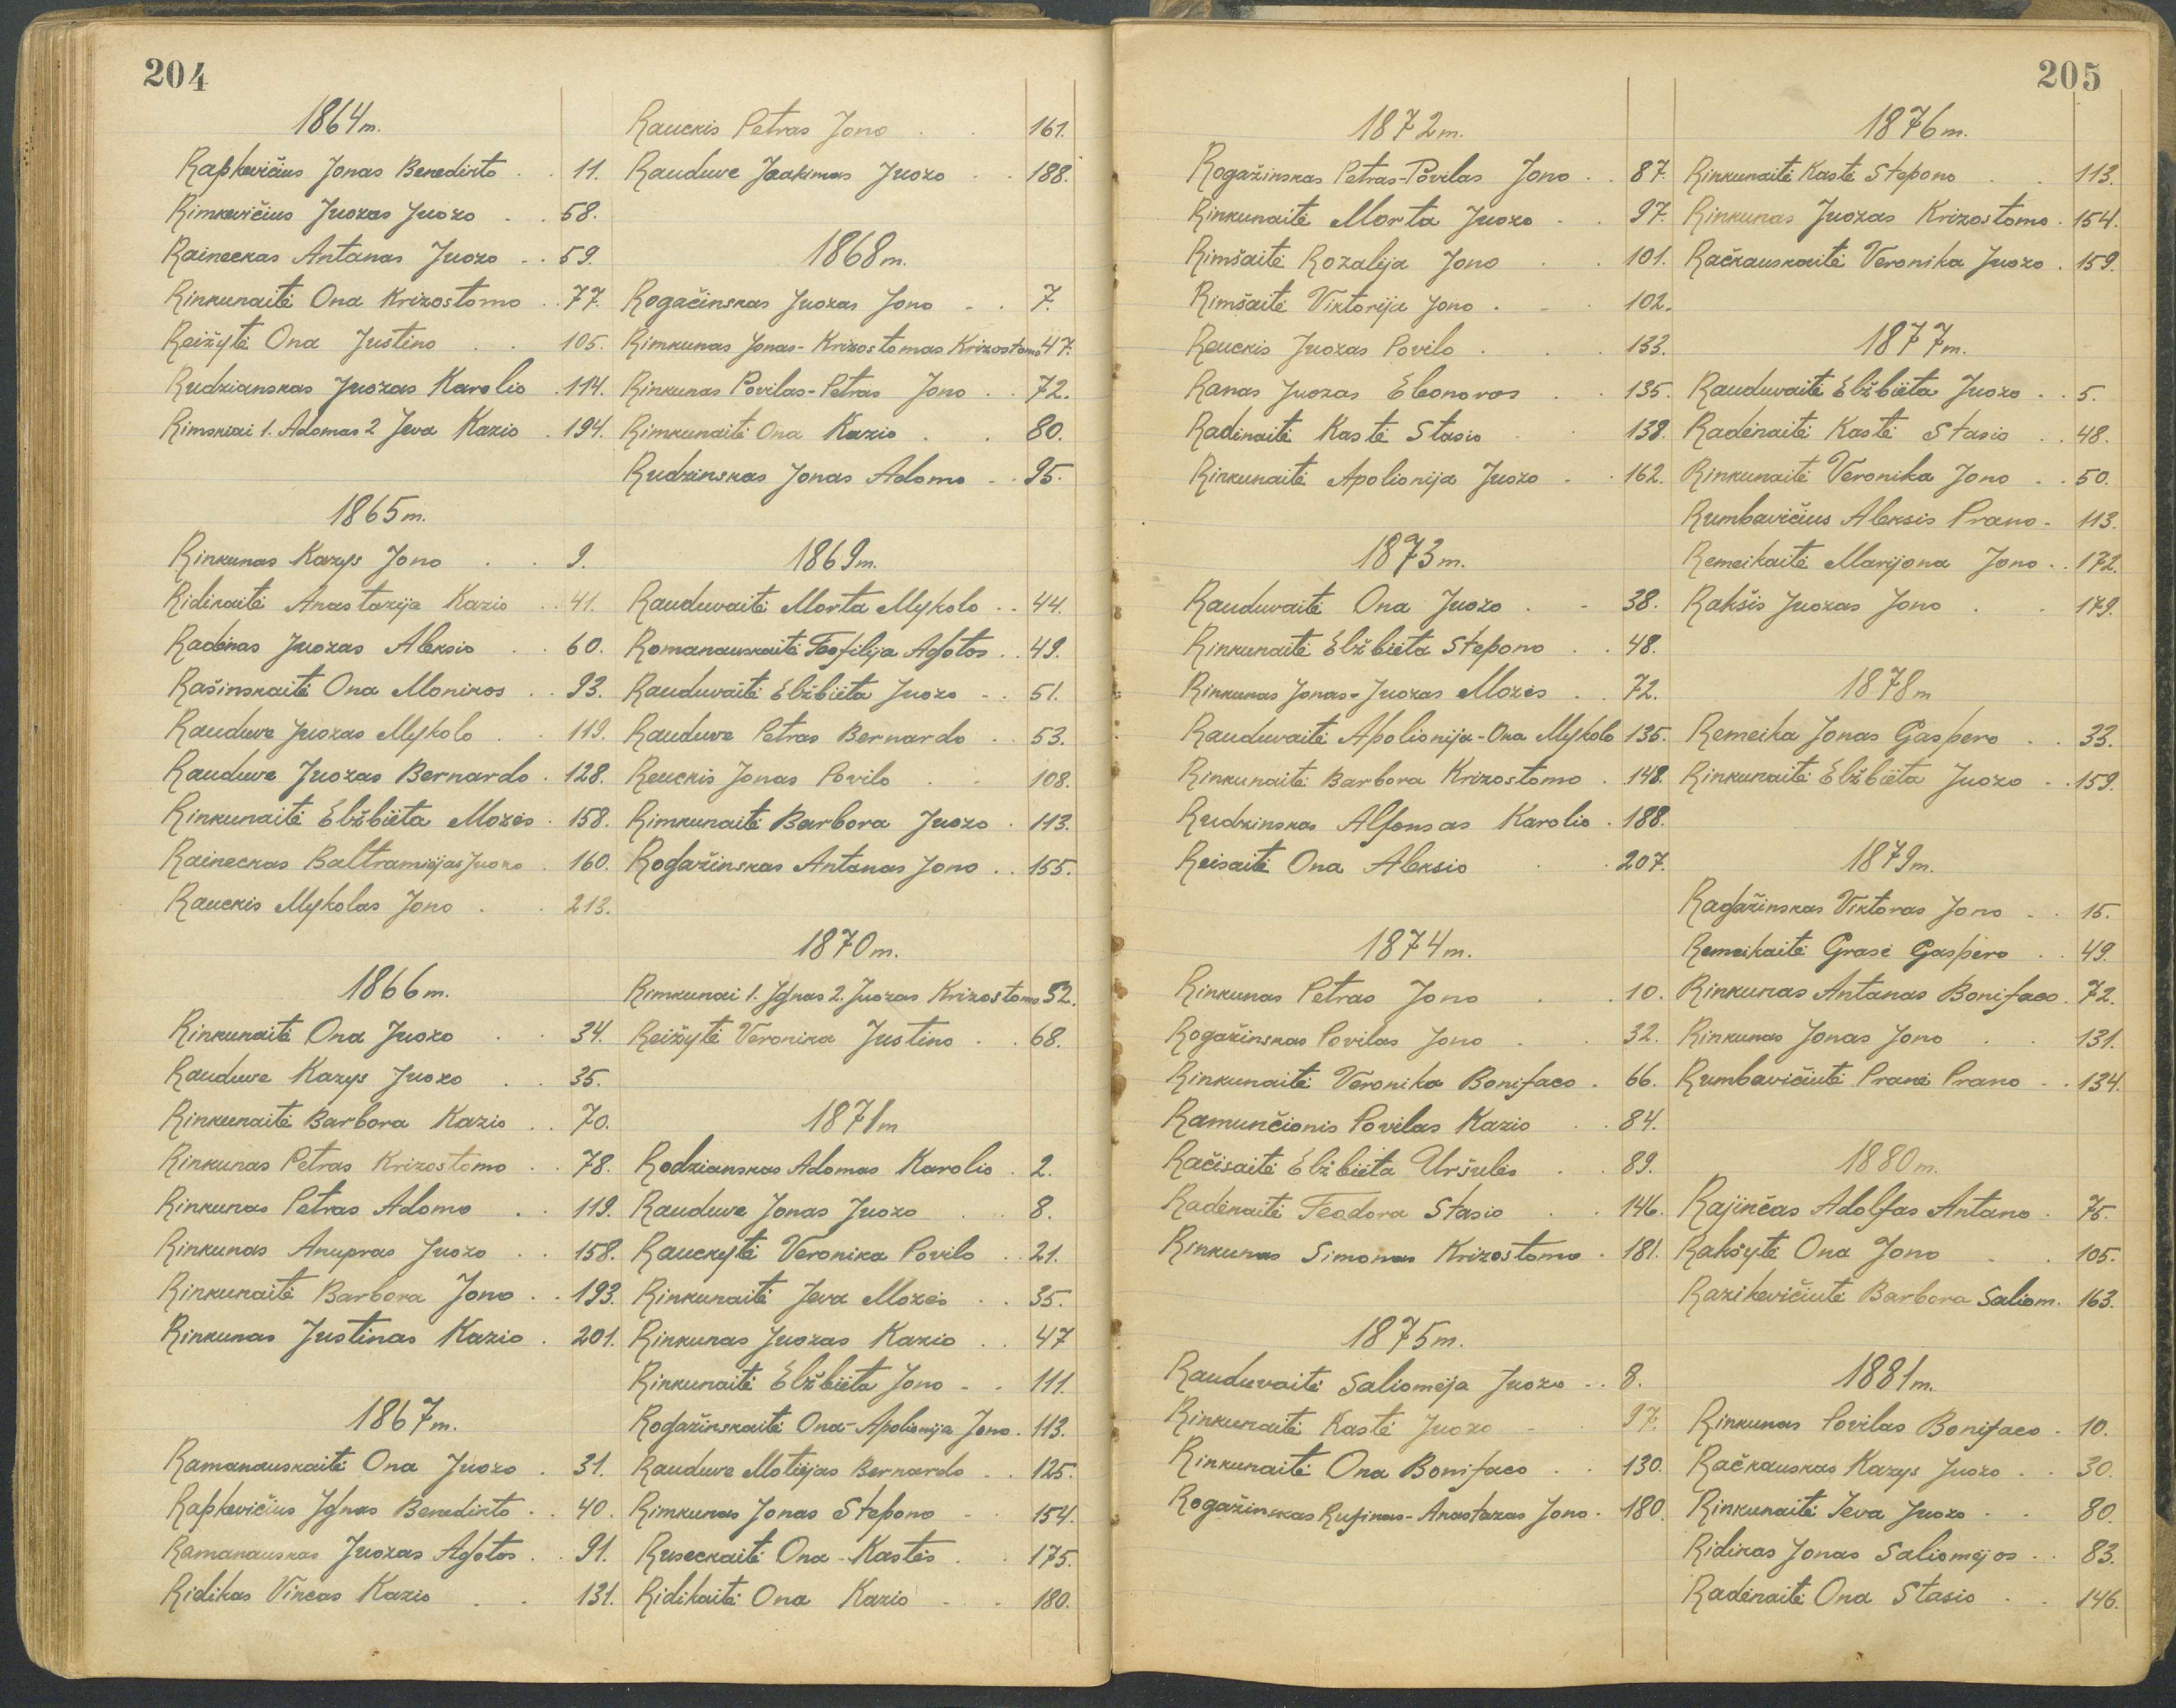 204
1864m.
Rapkevičius Jonas Benedikto . . 11.
Rimkevičius Juozas Juozo . . 58.
Raineckas Antanas Juozo . . 59.
Rinkunaitė Ona Krizostomo . . 77.
Reižytė Ona Justino . . 105.
Rudzianskas Juozas Karolio . 114.
Rimskiai 1. Adomas 2 Jeva Kazio . 194.
1865m.
Rinkunas Kazys Jono . . 9.
Ridikaitė Anastazija Kazio . . 41.
Radėnas Juozas Aleksio . . 60.
Rašinskaitė Ona Monikos . . 93.
Rauduve Juozas Mykolo . . 119.
Rauduve Juozas Bernardo . 128.
Rinkunaitė Elžbieta Mozės . 158.
Raineckas Baltramiejas Juozo . 160.
Rauckis Mykolas Jono . . 213.
1866m.
Rinkunaitė Ona Juozo . . 34.
Rauduve Kazys Juozo . . 35.
Rinkunaitė Barbora Kazio . . 70.
Rinkunas Petras Krizostomo . . 78.
Rinkunas Petras Adomo . . 119.
Rinkunas Anupras Juozo . . 158.
Rinkunaitė Barbora Jono . . 193.
Rinkunas Justinas Kazio . 201.
1867m.
Ramanauskaitė Ona Juozo . 31.
Rapkevičius Ignas Benedikto . . 40.
Ramanauskas Juozas Agotos . . 91.
Ridikas Vincas Kazio . . 131.
Rauckis Petras Jono . . 161.
Rauduve Joakimas Juozo . . 188.
1868m.
Rogačinskas Juozas Jono . . 7.
Rimkunas Jonas-Krizostomas Krizostomo 47.
Rinkunas Povilas-Petras Jono . . 72.
Rimkunaitė Ona Kazio . . 80.
Rudzinskas Jonas Adomo . . 95.
1869m.
Rauduvaitė Morta Mykolo . . 44.
Romanauskaitė Teofilija Agotos . . 49.
Rauduvaitė Elžbieta Juozo . . 51.
Rauduve Petras Bernardo . . 53.
Reuckis Jonas Povilo . . 108.
Rimkunaitė Barbora Juozo . 113.
Rogažinskas Antanas Jono . . 155.
1870m.
Rimkunai 1. Ignas 2. Juozas Krizostomo 52.
Reižytė Veronika Justino . . 68.
1871m
Rodzianskas Adomas Karolio . 2.
Rauduve Jonas Juozo . . 8.
Rauckytė Veronika Povilo . . 21.
Rinkunaitė Jeva Mozės . . 35.
Rinkunas Juozas Kazio . . 47
Rinkunaitė Elžbieta Jono . . 111.
Rogažinskaitė Ona-Apolionija Jono . 113.
Rauduve Motiejas Bernardo . . 125.
Rimkunas Jonas Stepono . . 154.
Ruseckaitė Ona Kastės . . 175.
Ridikaitė Ona Kazio . . 180.
205
1872m.
Rogažinskas Petras-Povilas Jono . . 87.
Rinkunaitė Morta Juozo . . 97.
Rimšaitė Rozalija Jono . . 101.
Rimšaitė Viktorija Jono . . . 102.
Reuckis Juozas Povilo . . . 133.
Ranas Juozas Eleonoros . . 135.
Radėnaitė Kastė Stasio . . 138.
Rinkunaitė Apolionija Juozo . . 162.
1873m.
Rauduvaitė Ona Juozo . . 38.
Rinkunaitė Elžbieta Stepono . . 48.
Rinkunas Jonas-Juozas Mozės . . 72.
Rauduvaitė Apolionija-Ona Mykolo 135.
Rinkunaitė Barbora Krizostomo . 148.
Rudzinskas Alfonsas Karolio . 188.
Reisaitė Ona Aleksio . . 207.
1874m.
Rinkunas Petras Jono . . 10.
Rogažinskas Povilas Jono . . 32.
Rinkunaitė Veronika Bonifaco . 66.
Ramunčionis Povilas Kazio . . 84.
Račisaitė Elžbieta Uršulės . . 89.
Radėnaitė Teodora Stasio . . 146.
Rinkunas Simonas Krizostomo . 181.
1875m.
Rauduvaitė Saliomėja Juozo . . 8.
Rinkunaitė Kastė Juozo . . 97.
Rinkunaitė Ona Bonifaco . . 130.
Rogažinskas Rufinas-Anastazas Jono . 180.
1876m.
Rinkunaitė Kastė Stepono . . 113.
Rinkunas Juozas Krizostomo . 154.
Račkauskaitė Veronika Juozo . 159.
1877m.
Rauduvaitė Elžbieta Juozo . . 5.
Radėnaitė Kastė Stasio . . 48.
Rinkunaitė Veronika Jono . . 50.
Rumbavičius Aleksis Prano . 113.
Remeikaitė Marijona Jono . . 172.
Rakšis Juozas Jono . . 179.
1878m
Remeika Jonas Gaspero . . 33.
Rinkunaitė Elžbieta Juozo . . 159.
1879m.
Ragažinskas Viktoras Jono . . 15.
Remeikaitė Grasė Gaspero . . 49.
Rinkunas Antanas Bonifaco . 72.
Rinkunas Jonas Jono . . 131.
Rumbavičiutė Pranė Prano . . 134.
1880m.
Rajinčas Adolfas Antano . 75.
Rakšytė Ona Jono . . 105.
Razikevičiutė Barbora Saliom. 163.
1881m.
Rinkunas Povilas Bonifaco . 10.
Račkauskas Kazys Juozo . . 30.
Rinkunaitė Ieva Juozo . . 80.
Ridikas Jonas Saliomėjos . . 83.
Radėnaitė Ona Stasio . . 146.